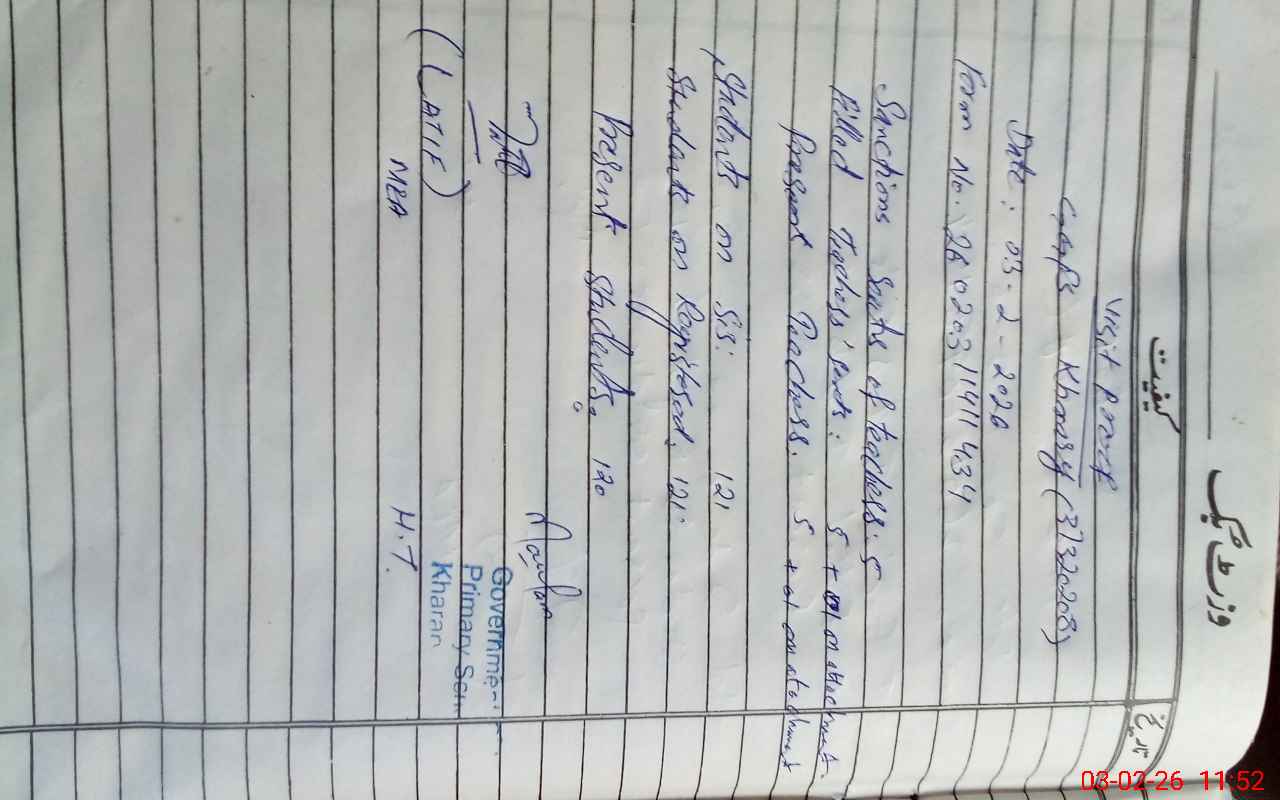 وزٹ بک
کیفیت
تاریخ
Visit Proof
Khmary (37320208)
Date: 03-2-2026
Form No. 26020311411434
Sanctions Seats of teachers. 5
Filled Teachers' seats: 5 + 01 on attachment.
Present Teachers. 5 + 01 on attachment
Students on Sis: 121
Students on Registered: 121
Present Students. 120
(LATIF)
MEA
H.T.
Government
Primary Sch
Kharan
03-02-26 11:52